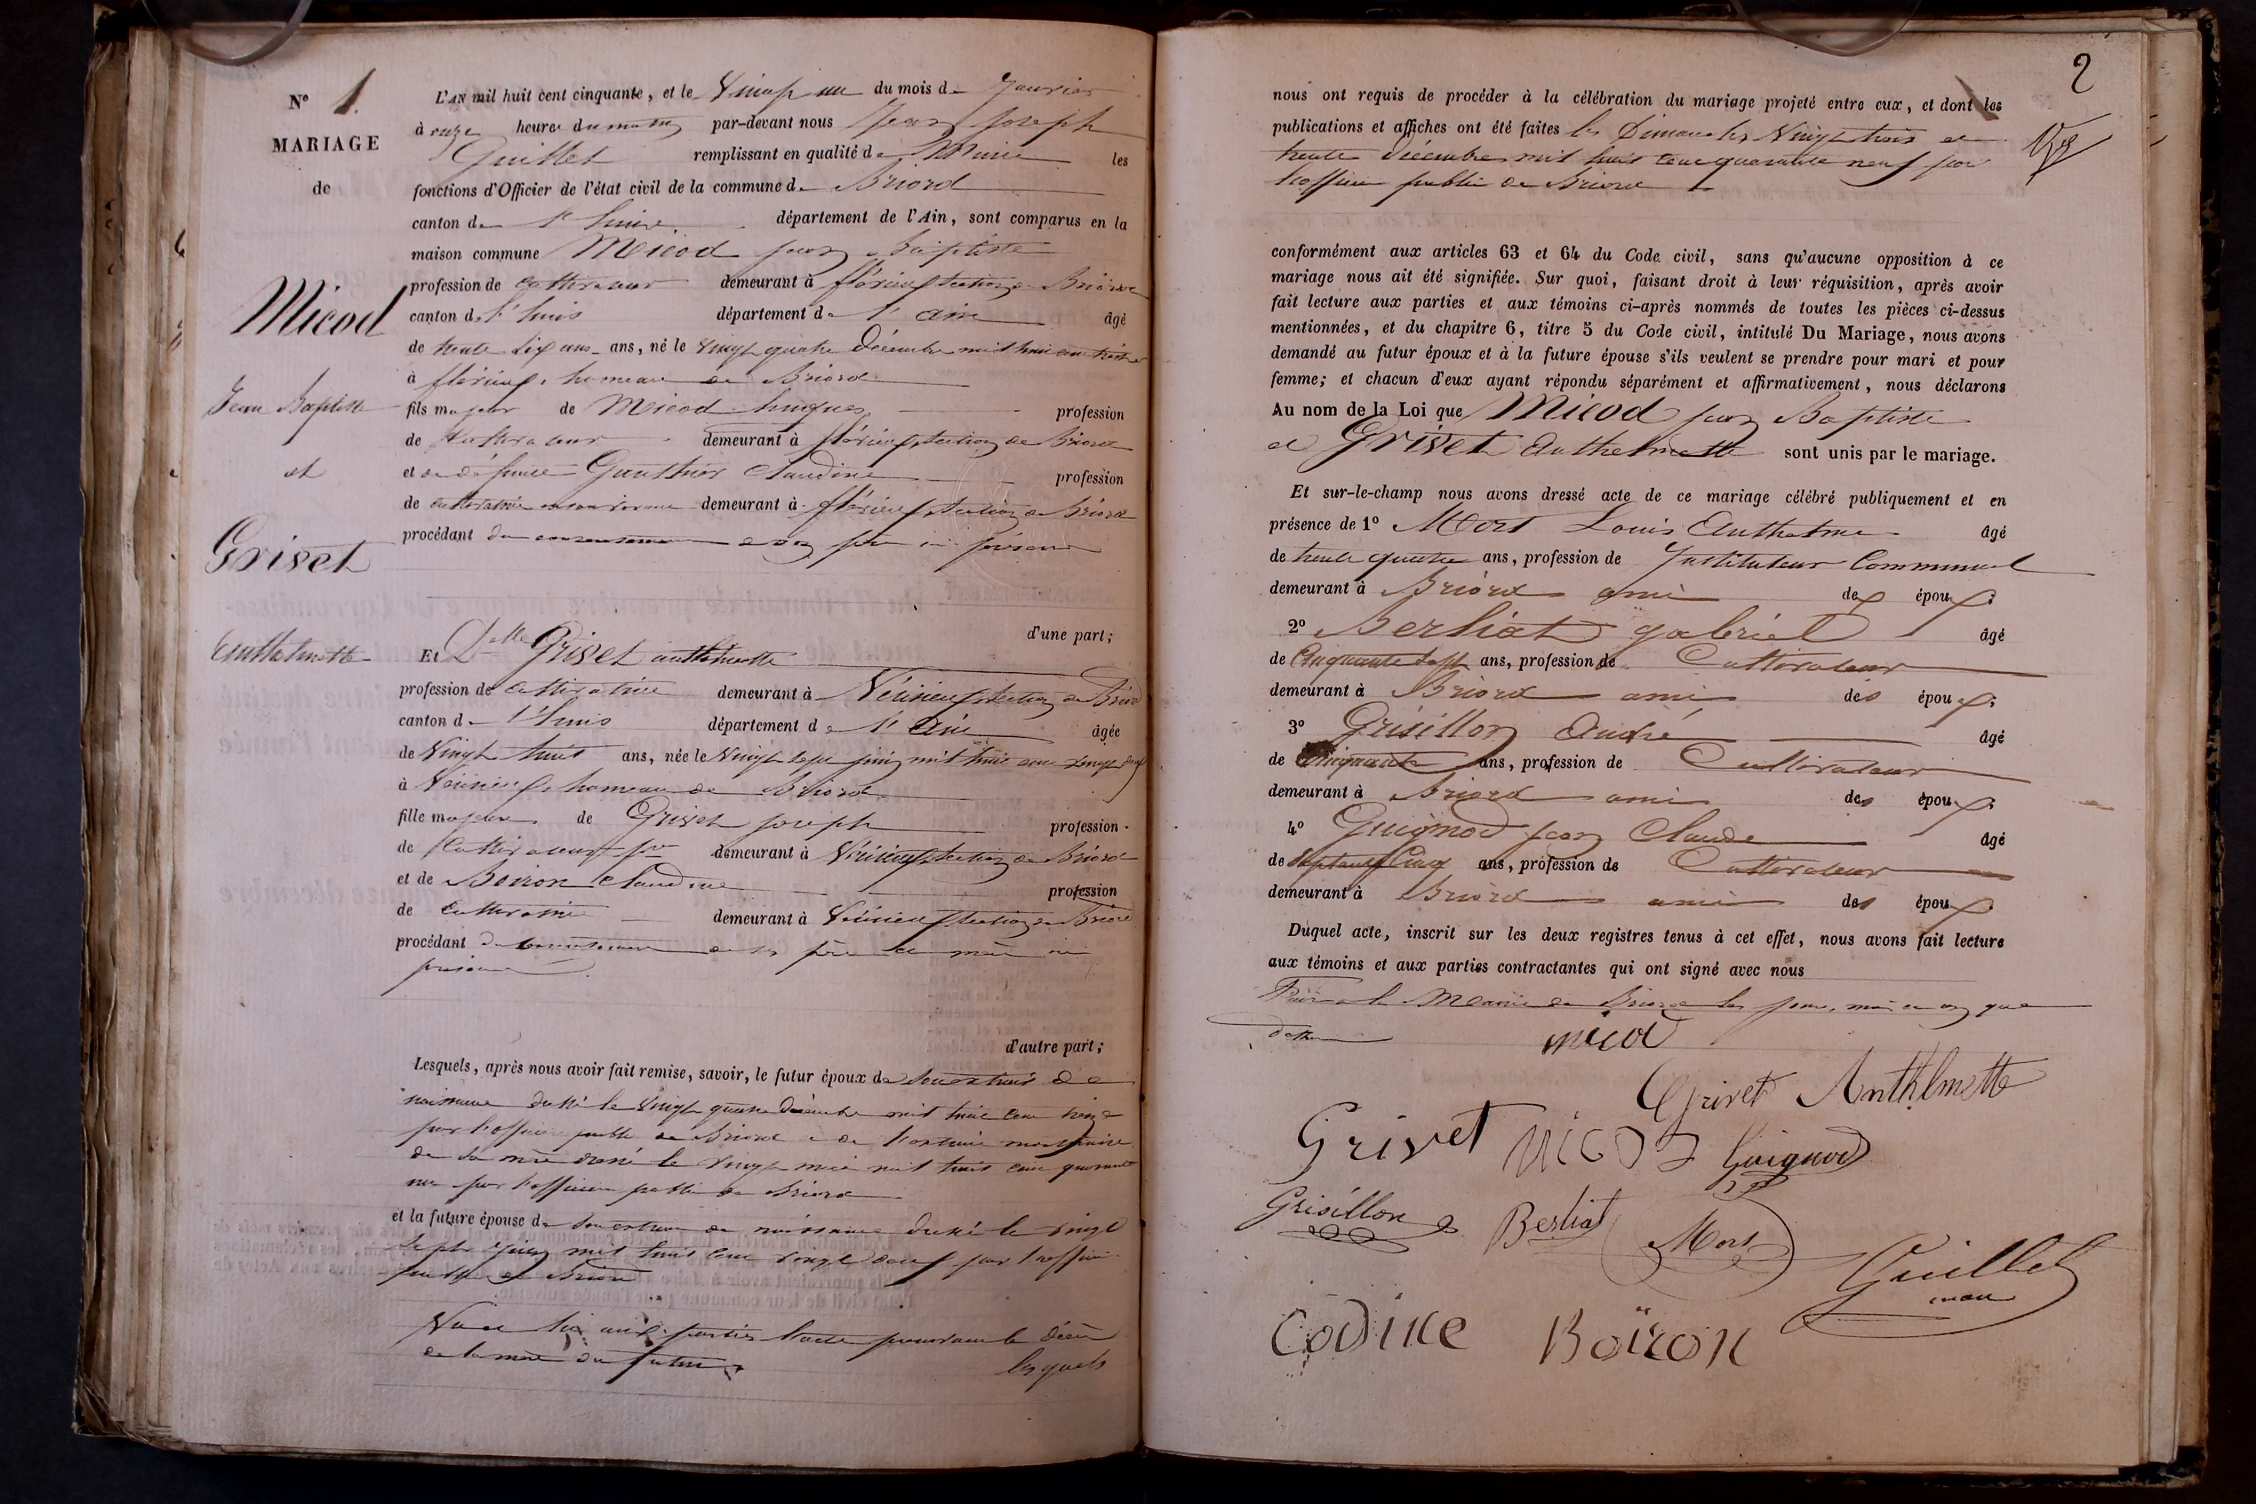 N° 1.
MARIAGE
de
Micod
Jean Baptiste
et
Grivet
Anthelmette
L'AN mil huit cent cinquante, et le Vingt un du mois de Janvier
à onze heures du matin par-devant nous Jean Joseph
Guillet remplissant en qualité de Maire les
fonctions d'Officier de l'état civil de la commune de Briord
canton de l'huis département de l'Ain, sont comparus en la
maison commune Micod jean Baptiste
profession de Cultivateur demeurant à flérieu section de Briord
canton de l'huis département de l'ain âgé
de trente six ans ans, né le vingt quatre décembre mil huit cent treize
à flérieu, hameau de Briord
fils majeur de Micod hugues profession
de Cultivateur demeurant à flérieu section de Briord
et de défunte Gauthier Claudine profession
de cultivatrice en son vivant demeurant à flérieu section de Briord
procédant du consentement de son père ici présent
d'une part;
Et Dlle Grivet anthelmette
profession de Cultivatrice demeurant à Vérizieu section de Briord
canton de l'huis département de l'Ain âgée
de Vingt huit ans, née le vingt sept juin mil huit cent vingt
à Vérizieu hameau de Briord
fille majeure de Grivet joseph profession
de Cultivateur demeurant à Vérizieu section de Briord
et de Boiron Claudine profession
de Cultivatrice demeurant à Vérizieu section de Briord
procédant du consentement de ses père et mère ici
présents
d'autre part;
Lesquels, après nous avoir fait remise, savoir, le futur époux de son extrait de
naissance dressé le vingt quatre décembre mil huit cent treize
par l'officier public de Briord & de l'extrait mortuaire
de sa mère dressé le vingt mai mil huit cent quarante
par l'officier public de Briord
et la future épouse de son extrait de naissance dressé le vingt
sept juin mil huit cent vingt par l'officier
public de Briord
Vu et lu aux parties l'acte le décès
de la mère du futur.
lesquels
2
nous ont requis de procéder à la célébration du mariage projeté entre eux, et dont les
publications et affiches ont été faites les Dimanches Vingt trois et
trente décembre mil huit cent quarante neuf par
l'officier public de Briord
conformément aux articles 63 et 64 du Code civil, sans qu'aucune opposition à ce
mariage nous ait été signifiée. Sur quoi, faisant droit à leur réquisition, après avoir
fait lecture aux parties et aux témoins ci-après nommés de toutes les pièces ci-dessus
mentionnées, et du chapitre 6, titre 5 du Code civil, intitulé Du Mariage, nous avons
demandé au futur époux et à la future épouse s'ils veulent se prendre pour mari et pour
femme; et chacun d'eux ayant répondu séparément et affirmativement, nous déclarons
Au nom de la Loi que Micod jean Baptiste
et Grivet Anthelmette sont unis par le mariage.
Et sur-le-champ nous avons dressé acte de ce mariage célébré publiquement et en
présence de 1° Mort Louis Anthelme âgé
de trente quatre ans, profession de Instituteur Communal
demeurant à Briord ami des époux;
2° Berliat gabriel âgé
de Cinquante sept ans, profession de Cultivateur
demeurant à Briord ami des époux;
3° Grisillon André âgé
de Cinquante ans, profession de Cultivateur
demeurant à Briord ami des époux;
4° Guignod jean Claude âgé
de Septante Cinq ans, profession de Cultivateur
demeurant à Briord ami des époux.
Duquel acte, inscrit sur les deux registres tenus à cet effet, nous avons fait lecture
aux témoins et aux parties contractantes qui ont signé avec nous
Fait à la Mairie de Briord les jour, mois et an que
dessus
micod
Grivet Anthelmette
Grivet MICOD Guignod
Grisillon Berliat Mort
Guillet
maire
CODINE BOÏRON